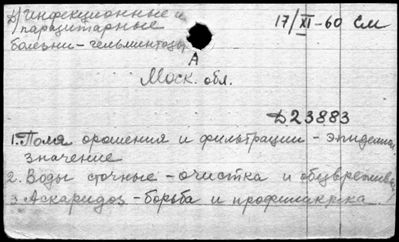 Д) Инфекционные и
паразитарные
болезни - гельминтозы
17/XI-60 См
А
Моск. обл.
Д23883
1. Поля орошения и фильтрации - эпидемич.
значение
2. Воды сточные - очистка и обезвреживан.
3. Аскаридоз - борьба и профилактика